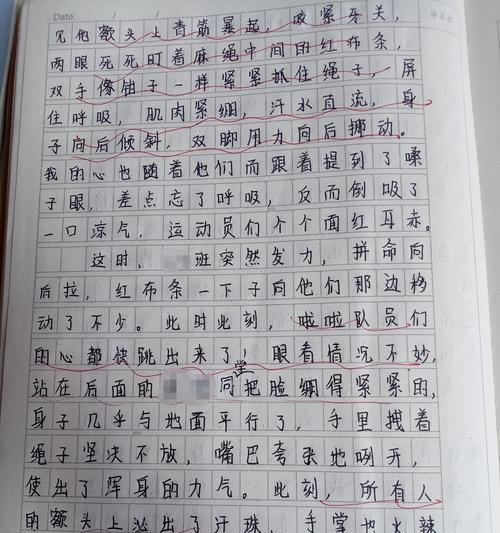 Date.
见他额头上青筋暴起，咬紧牙关，
两眼死死盯着麻绳中间的红布条，
双手像钳子一样紧紧抓住绳子，屏
住呼吸，肌肉紧绷，汗水直流，身
子向后倾斜，双脚用力向后挪动。
我的心也随着他们而跟着提到了嗓
子眼，差点忘了呼吸，反而倒吸了
一口凉气，运动员们个个面红耳赤。
这时，班突然发力，拼命向
后拉，红布条一下子向他们那边移
动了不少。此时此刻，啦啦队员们
的心都快跳出来了，眼看情况不妙，
站在后面的同把脸绷得紧紧的，
堂
身子几乎与地面平行了，手里拽着
绳子坚决不放，嘴巴夸张地咧开，
使出了浑身的力气。此刻，所有人
的额头上出了汗珠，手掌也火辣